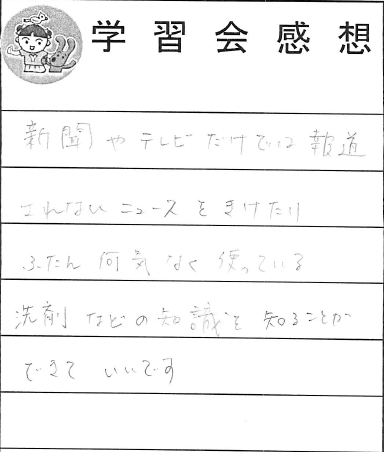 学習会感想
新聞やテレビだけでは報道
されないニュースをきけたり
ふだん何気なく使っている
洗剤などの知識を知ることが
できていいです